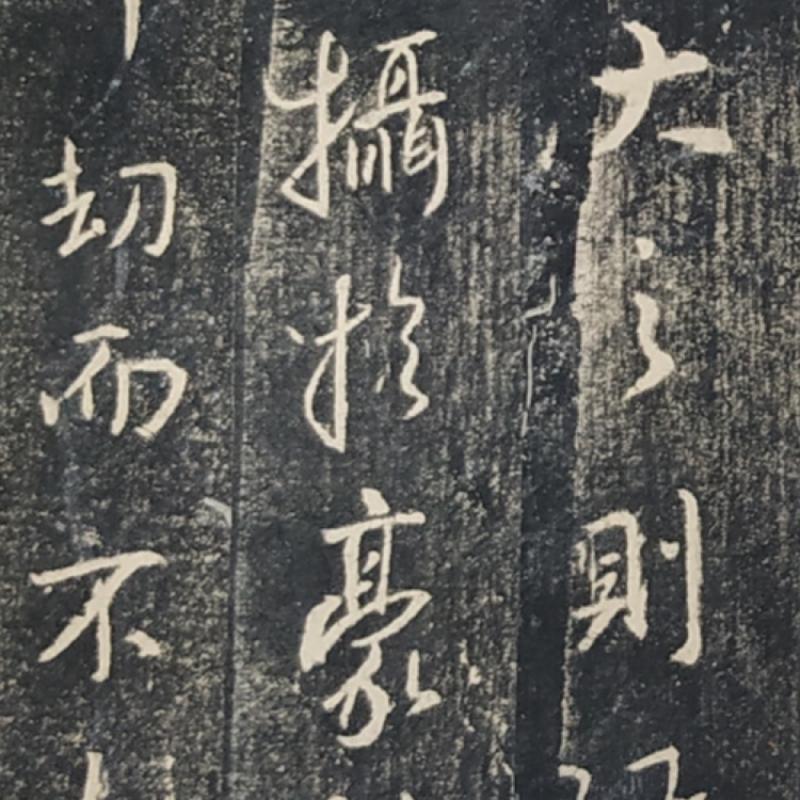 大之則
攝於豪
劫而不